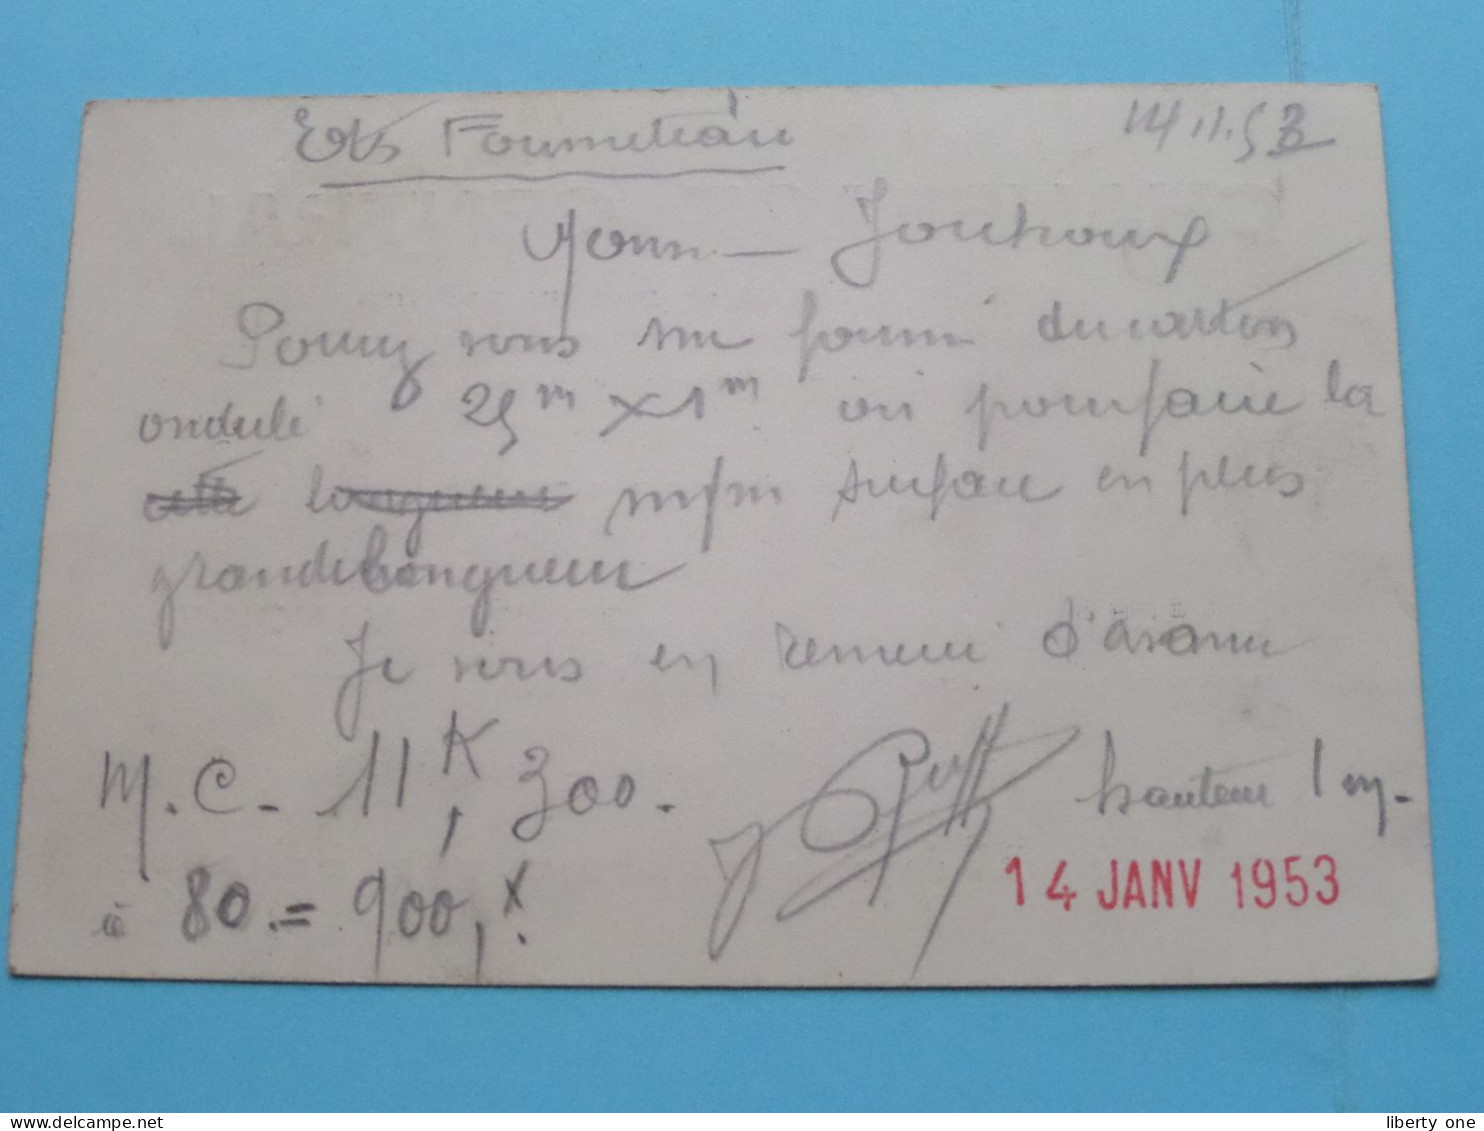 Ets Fournetrau 14.1.53
Mons — Jouhoux
Pouvez vous me fournir du carton
ondulé 25m × 1m ou pour faire la
longueur même surface en plus
grande longueur
Je vous en remerci d'avance
M.C. - 11K,300. hauteur 1 m.
à 80.= 900,x
14 JANV 1953
liberty one